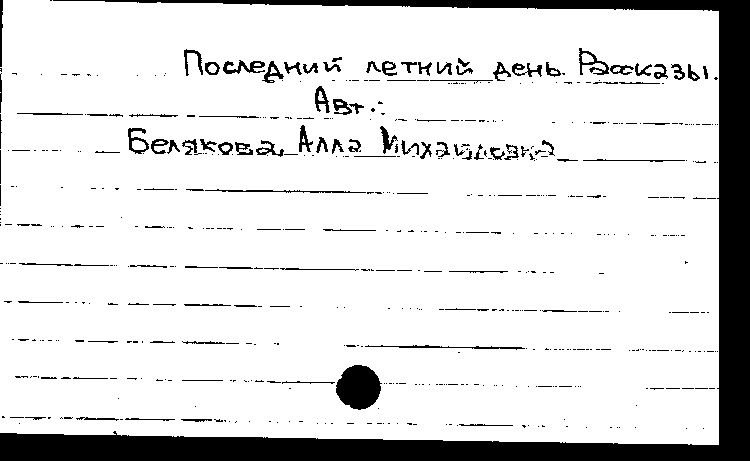 Последний летний день. Рассказы.
Авт.:
Белякова, Алла Михайловна